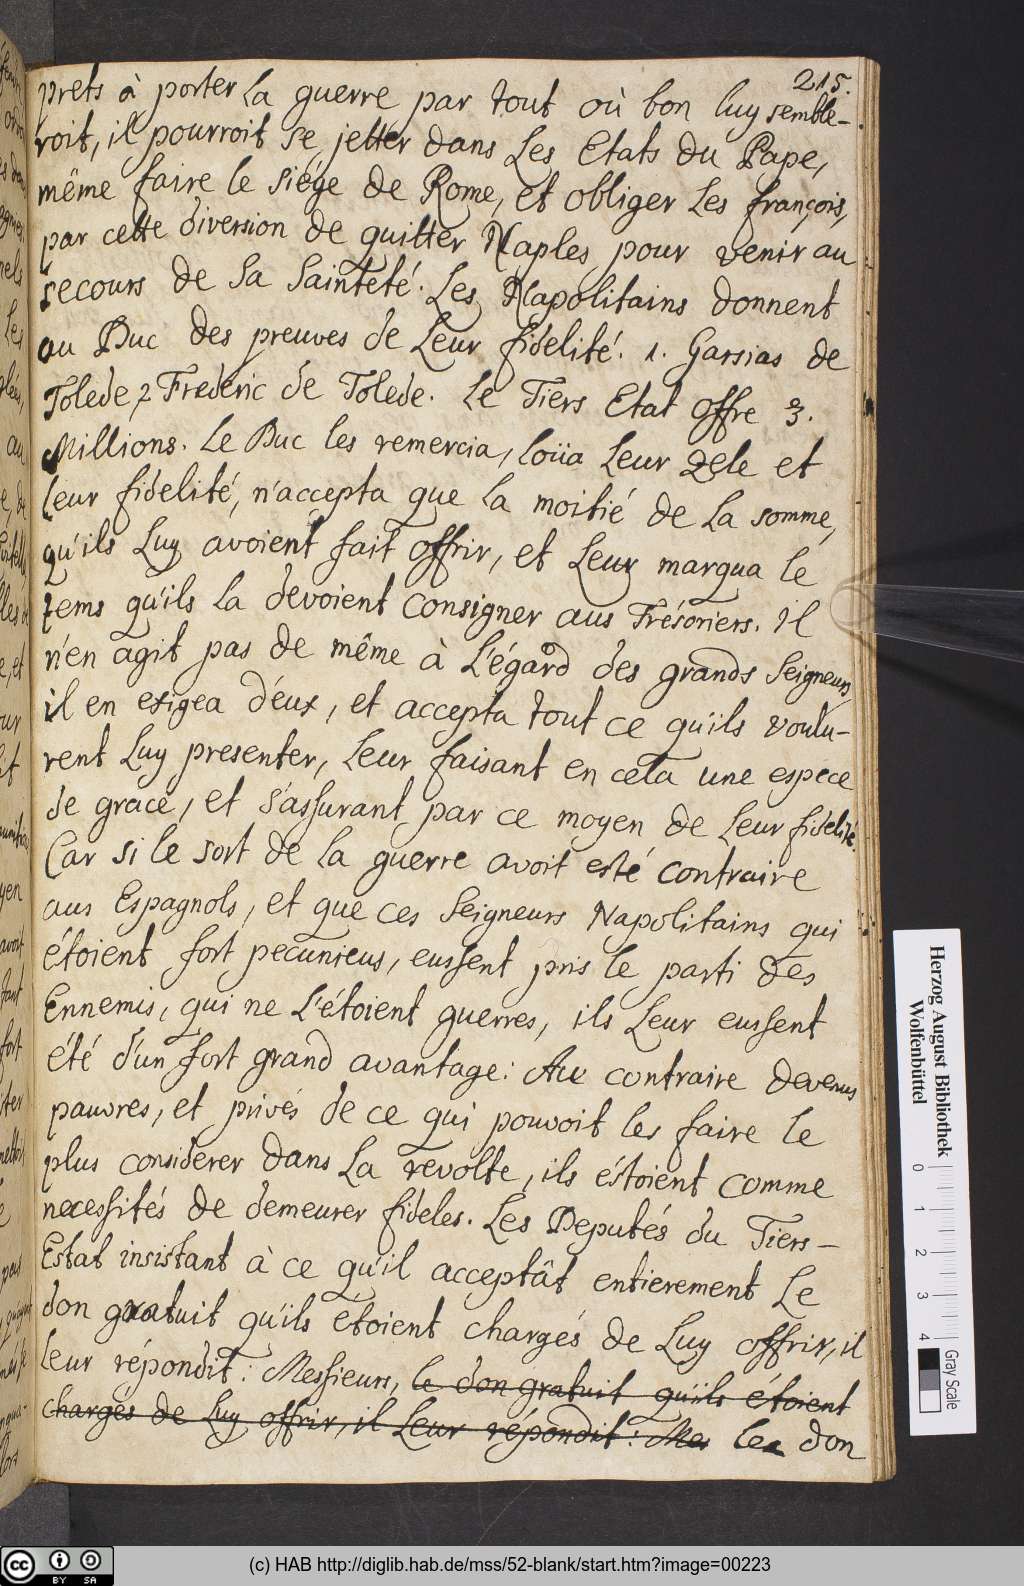 215.
prets à porter la guerre par tout où bon luy semble-
roit, il pourroit se jetter dans les Etats du Pape,
même faire le siége de Rome, et obliger les françois,
par cette diversion de quitter Naples pour venir au
secours de Sa Sainteté. Les Napolitains donnent
au Duc des preuves de leur fidelité. 1. Garsias de
Tolede, 2 Frederic de Tolede. Le Tiers Etat offre 3.
Millions. Le Duc les remercia, loüa leur zele et
leur fidelité, n'accepta que la moitié de la somme,
qu'ils luy avoient fait offrir, et leur marqua le
tems qu'ils la devoient consigner aus Trésoriers. Il
n'en agit pas de même à l'égard des grands Seigneurs,
il en exigea d'eux, et accepta tout ce qu'ils voulu-
rent luy presenter, leur faisant en cela une espece
de grace, et s'assurant par ce moyen de leur fidelité.
Car si le sort de la guerre avoit esté contraire
aus Espagnols, et que ces Seigneurs Napolitains qui
étoient fort pecunieus, eussent pris le parti des
Ennemis, qui ne l'étoient guerres, ils leur eussent
été d'un fort grand avantage: Au contraire devenus
pauvres, et privés de ce qui pouvoit les faire le
plus considerer dans la revolte, ils éstoient comme
necessités de demeurer fideles. Les Deputés du Tiers-
Estat insistant à ce qu'il acceptât entierement le
don gratuit qu'ils étoient chargés de luy offrir, il
leur répondit: Messieurs, le don gratuit qu'ils étoient
chargés de luy offrir, il leur répondit: Mes le don
Herzog August Bibliothek
Wolfenbüttel
0 1 2 3 4
Gray Scale
cc BY SA
(c) HAB http://diglib.hab.de/mss/52-blank/start.htm?image=00223